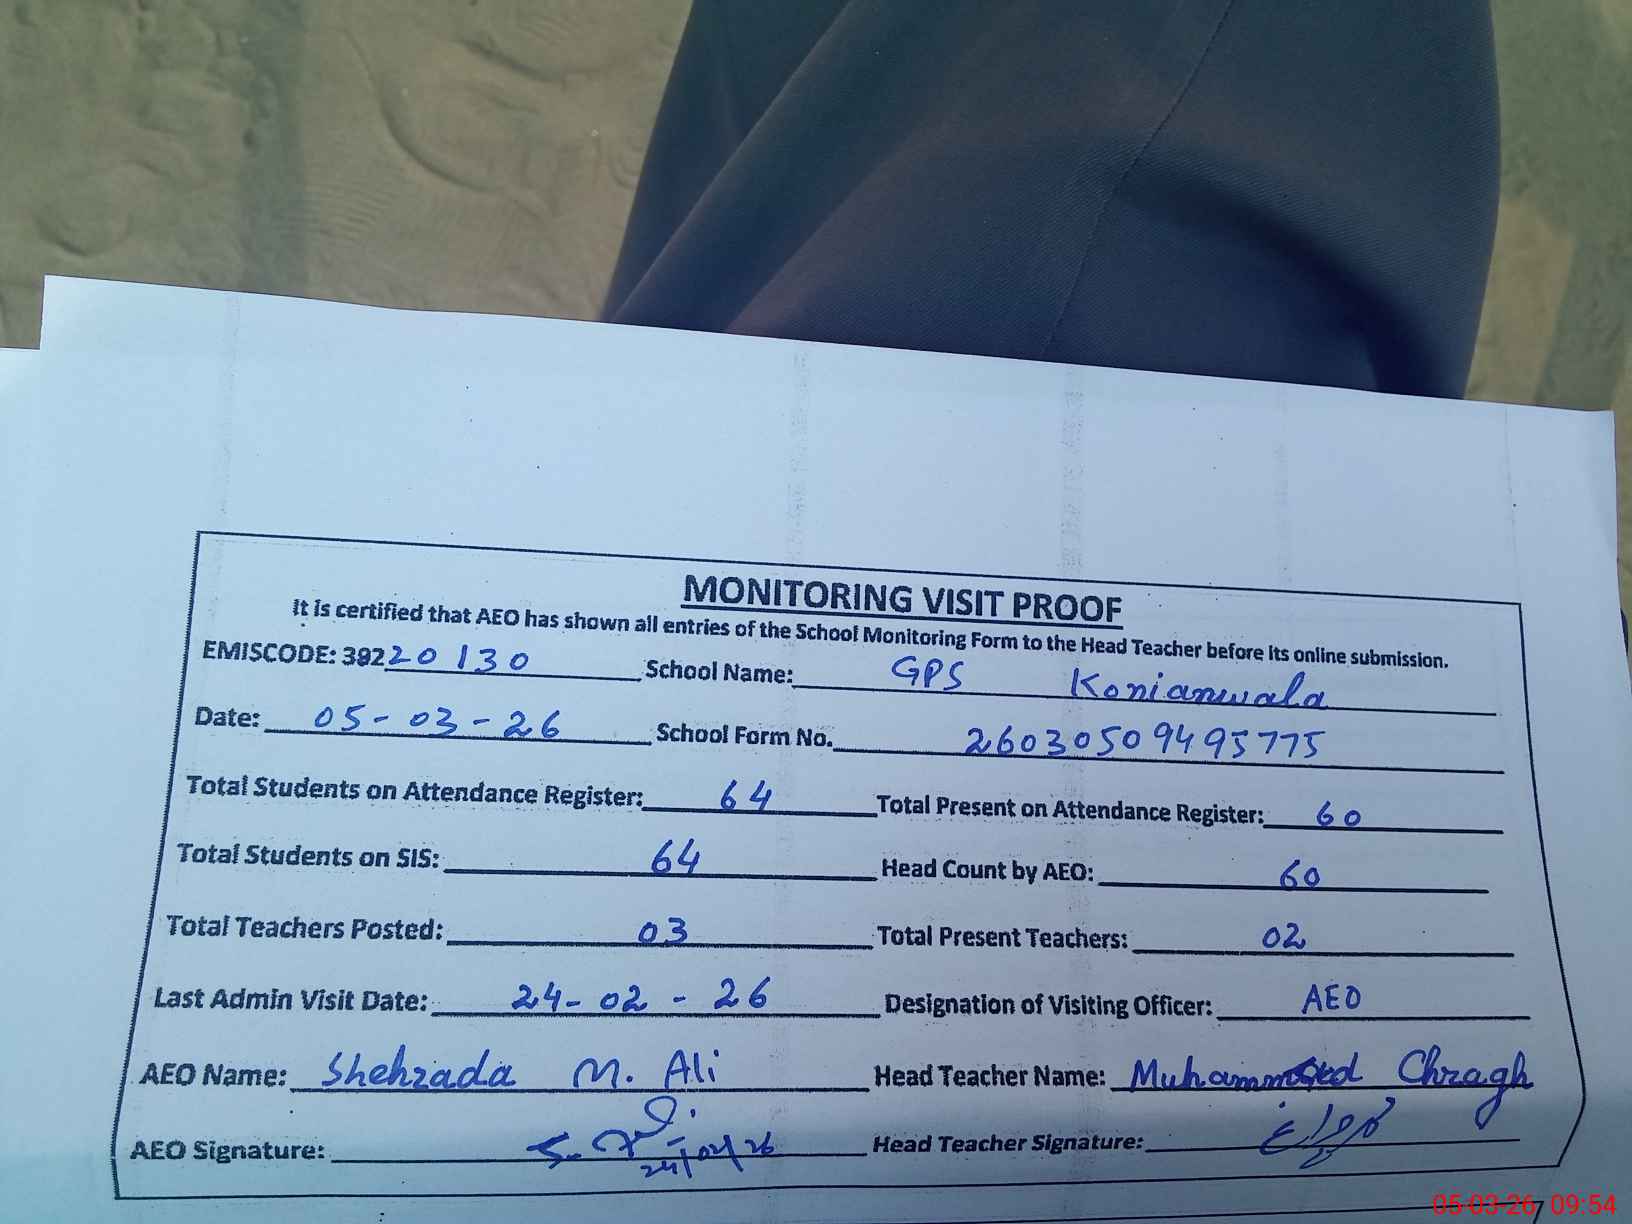 MONITORING VISIT PROOF
It is certified that AEO has shown all entries of the School Monitoring Form to the Head Teacher before its online submission.
EMISCODE: 39220130 School Name: GPS Konianwala
Date: 05-03-26 School Form No. 26030509495775
Total Students on Attendance Register: 64 Total Present on Attendance Register: 60
Total Students on SIS: 64 Head Count by AEO: 60
Total Teachers Posted: 03 Total Present Teachers: 02
Last Admin Visit Date: 24-02-26 Designation of Visiting Officer: AEO
AEO Name: Shehzada M. Ali Head Teacher Name: Muhammad Chragh
AEO Signature: 24/02/26 Head Teacher Signature:
05-03-26 09:54